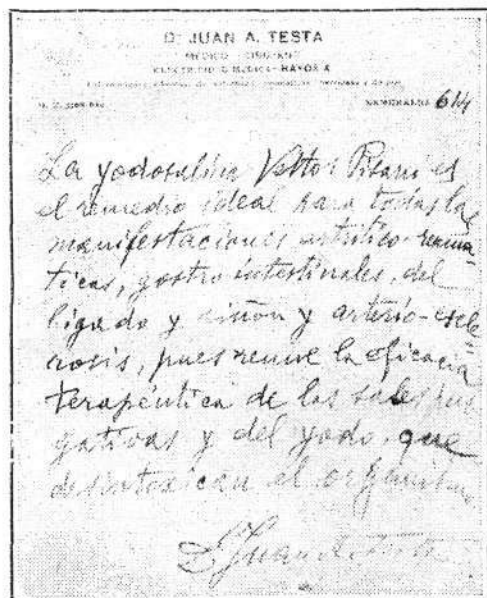 Dr JUAN A. TESTA
MEDICO - CIRUJANO
ELECTRICIDAD MEDICA - RAYOS X
MEMORANDA 614
La yodosalina Vettor Pisani es
el remedio ideal para todas las
manifestaciones artrítico-reumá=
ticas, gastro intestinales, del
hígado y riñon y arterio-escle=
rosis, pues reune la eficacia
terapéutica de las sales pur
gativas y del yodo, que
desintoxican el organismo
Dr Juan A. Testa